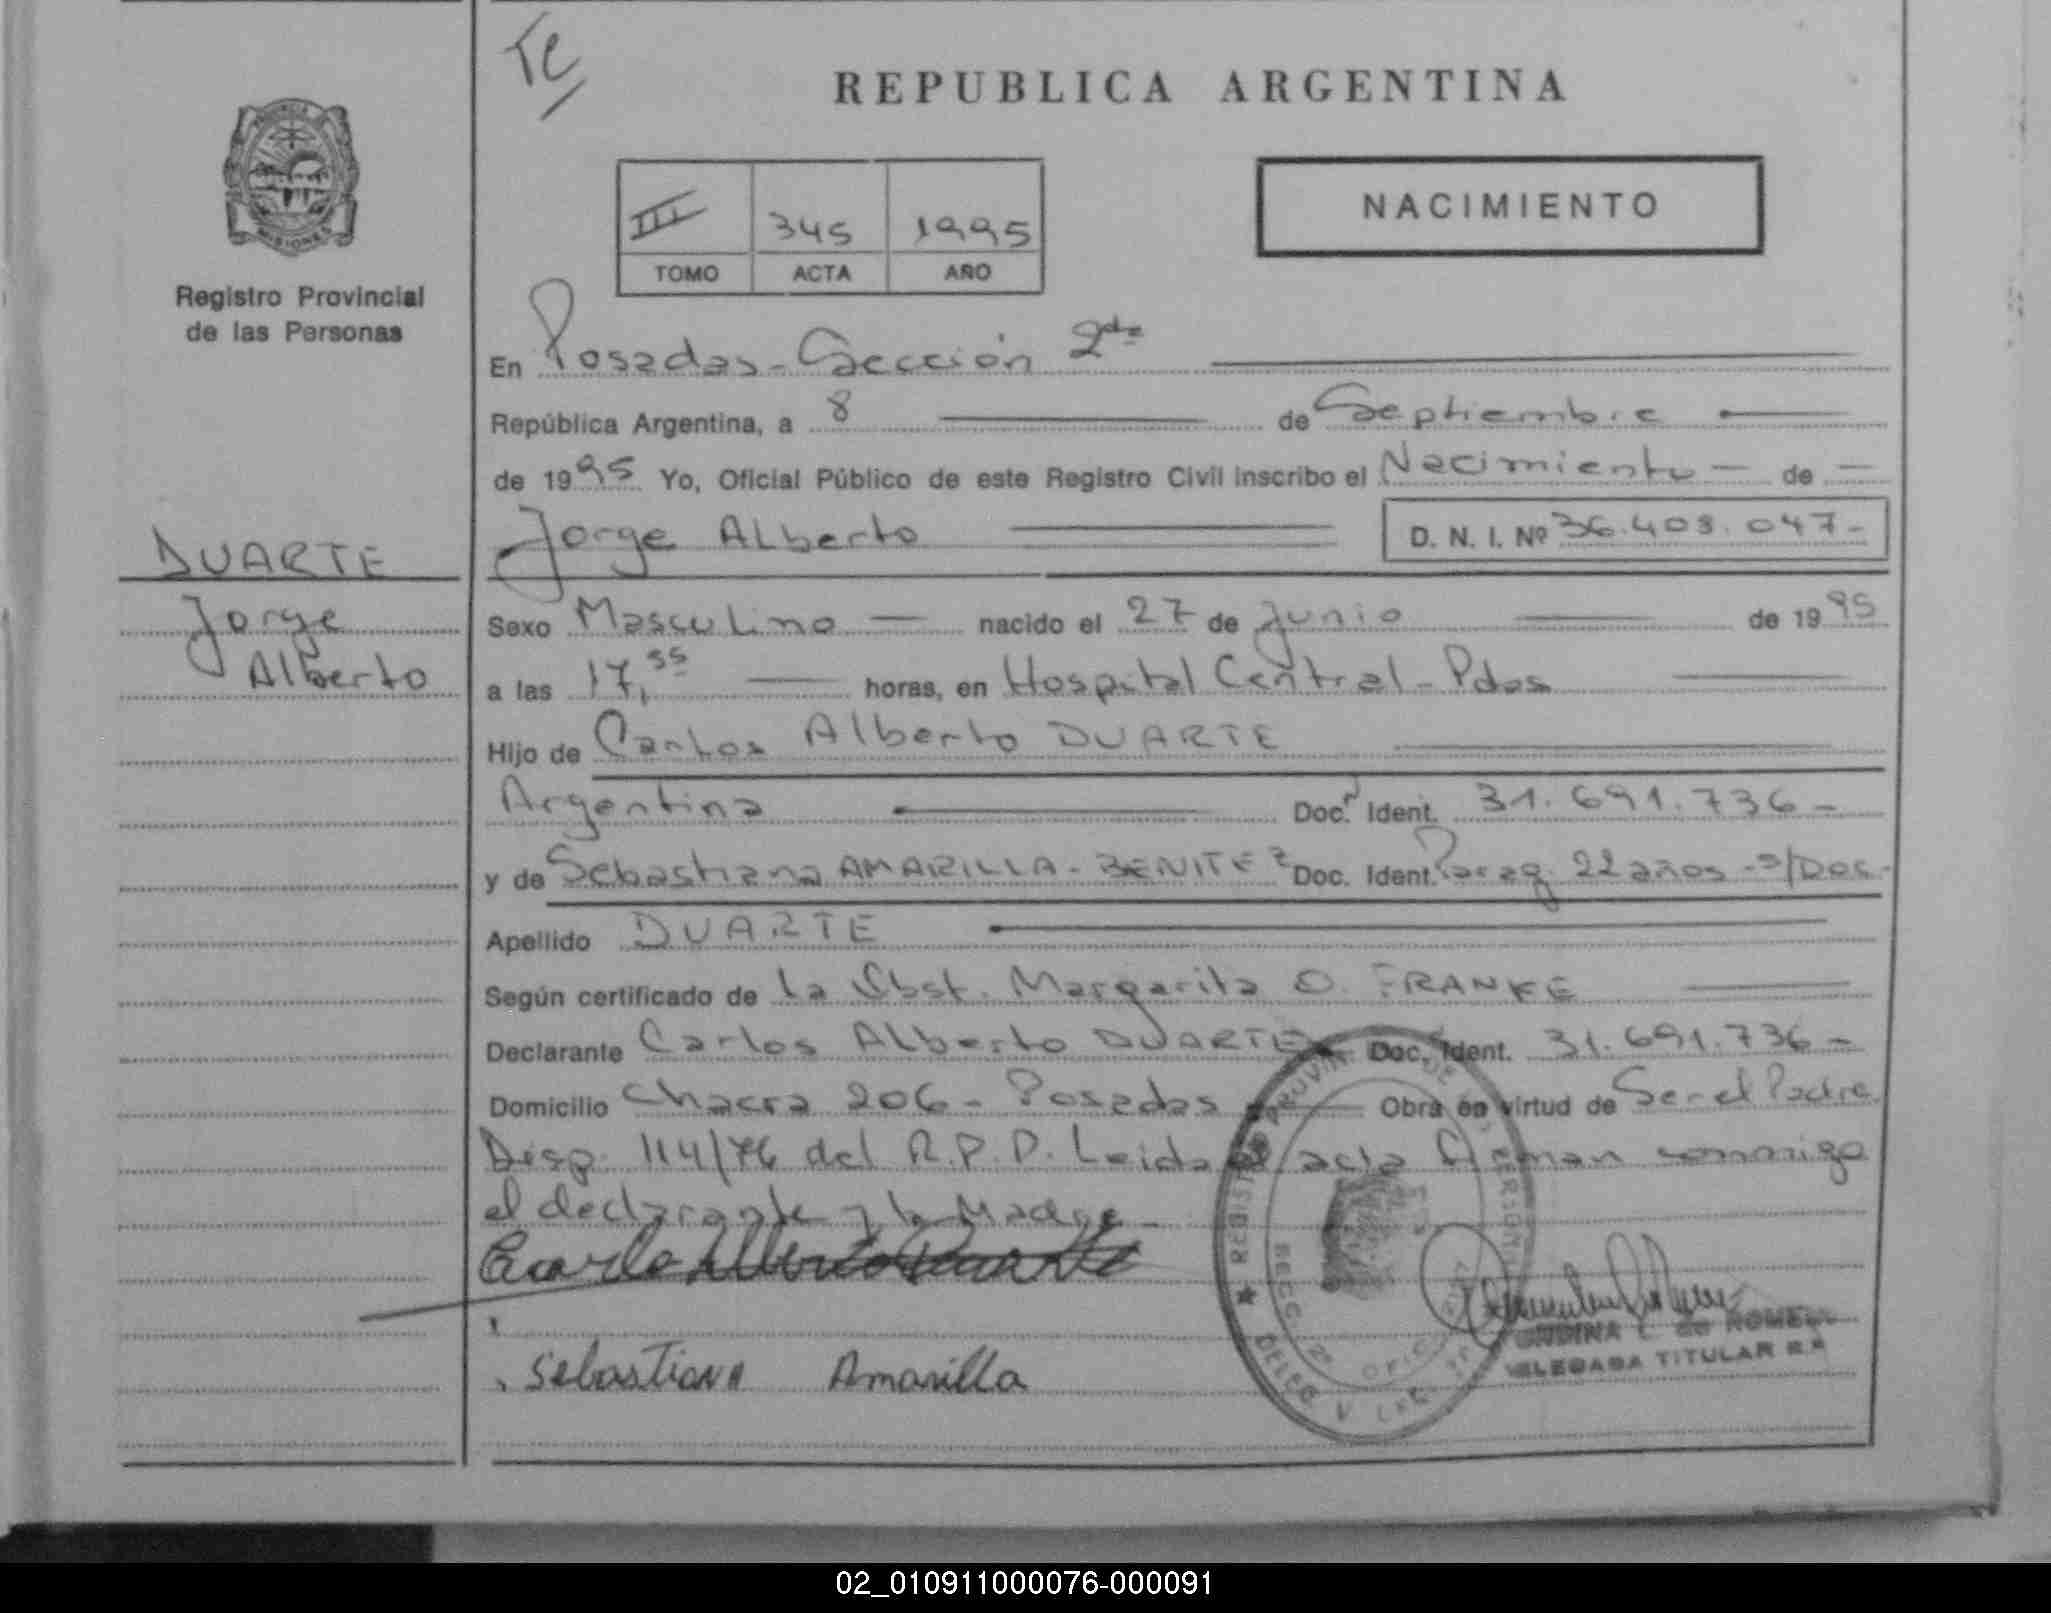 Te
REPUBLICA ARGENTINA
MISIONES
Registro Provincial
de las Personas
III 345 1995
TOMO ACTA AÑO
NACIMIENTO
En Posadas - Sección 2da
República Argentina, a 8 de Septiembre
de 1995 Yo, Oficial Público de este Registro Civil inscribo el Nacimiento - de -
Jorge Alberto D. N. I. Nº 36.408.047-
DUARTE
Jorge
Alberto
Sexo Masculino nacido el 27 de Junio de 1995
a las 17,55 horas, en Hospital Central - Pdas
Hijo de Carlos Alberto DUARTE
Argentina Doc. Ident. 31.691.736-
y de Sebastiana AMARILLA - BENITEZ Doc. Ident. Parag. 22 años - s/Doc.-
Apellido DUARTE
Según certificado de la Obst. Margarita O. FRANKE
Declarante Carlos Alberto DUARTE Doc. Ident. 31.691.736-
Domicilio Chacra 206 - Posadas Obra en virtud de Ser el Padre
Disp. 114/76 del R.P.P. Leida el acta Firman conmigo
el declarante y la Madre -
Carlo Alberto Duarte
Sebastiana Amarilla
SECC. 2ª
TITULAR
02_010911000076-000091